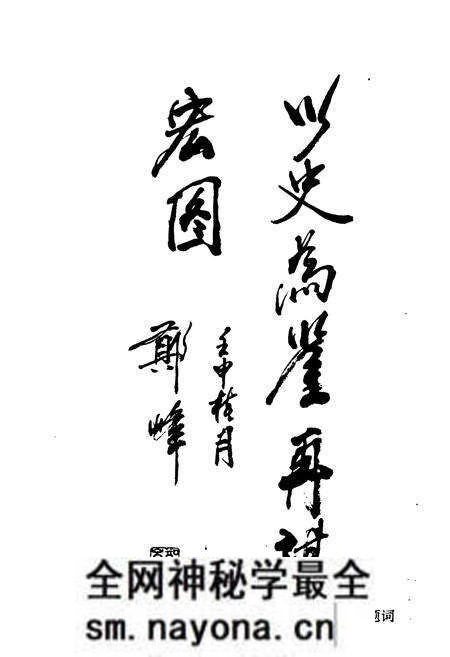 以史為鉴再
宏图
壬申桂月
鄭峰
词
全网神秘学最全
sm.nayona.cn